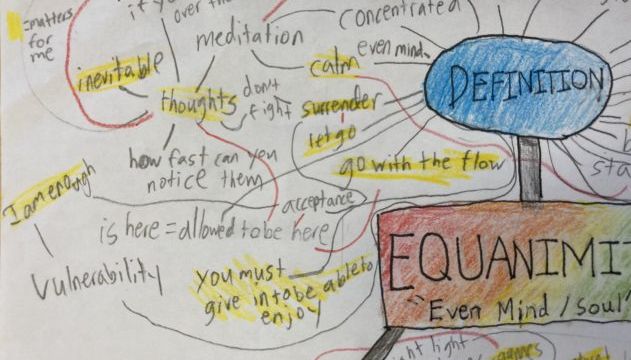 =matters
for
me
if yo
over th
meditation
concentrated
even mind
calm
inevitable
thoughts
don't
fight
surrender
let go
go with the flow
how fast can you
notice them
I am enough
acceptance
is here = allowed to be here
Vulnerability
you must
give in to be able to
enjoy
DEFINITION
sta
EQUANIMI
"Even Mind / Soul"
light